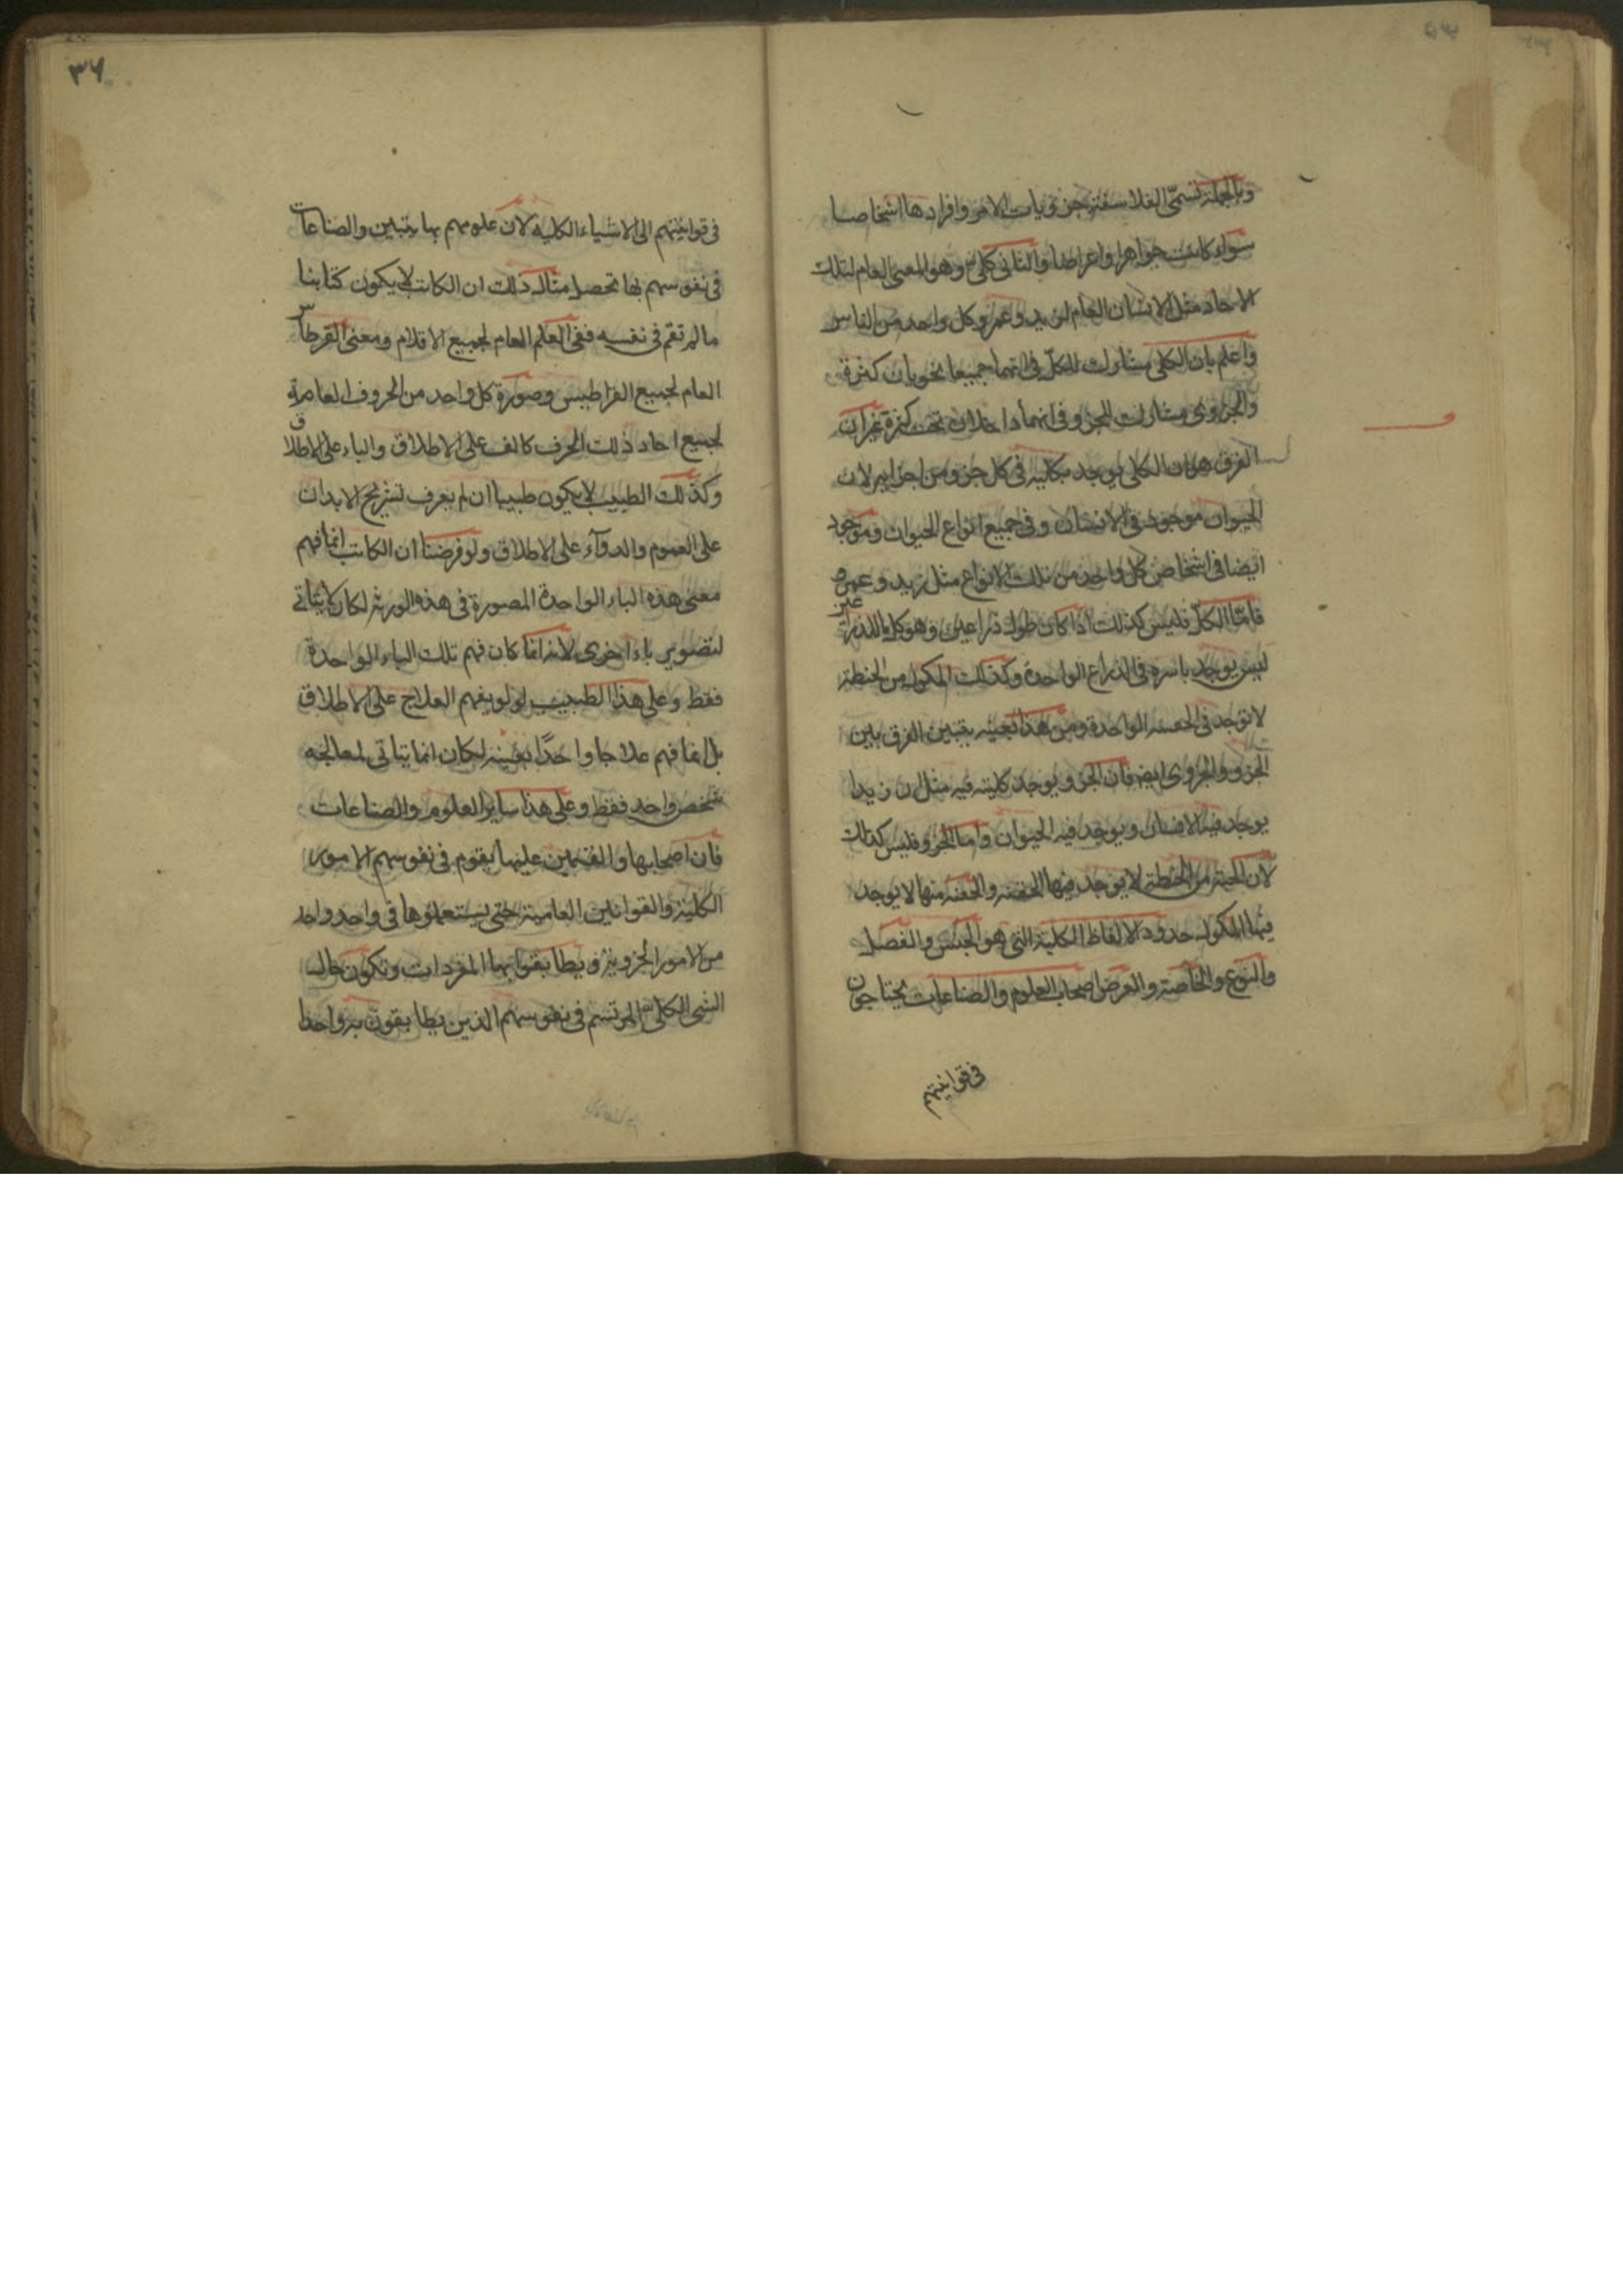 وبالجملة تسمى الفلاسفة جزويات الامر وافرادها اشخاصا
سواء كانت جواهرا واعراضا والثانى كلى وهو المعنى العام لتلك
الاحاد مثل الانسان العام لزيد وعمرو وكل واحد من الناس
واعلم بان الكلى مشارك للكل فى انهما جميعا يحويان كثرة
والجزوى مشارك للجزو فى انهما داخلان تحت كثرة غير ان
الفرق هو ان الكلى يوجد بكليته فى كل جزو من اجزايه لان
الحيوان موجود فى الانسان وفى جميع انواع الحيوان وموجود
ايضا فى اشخاص كل واحد من تلك الانواع مثل زيد وعمرو
فاما الكل فليس كذلك اذا كان طوله ذراعين وهو كل الذراع
غير
ليس يوجد باسره فى الذراع الواحدة وكذلك المكول من الحنطة
لا توجد فى الحفنه الواحدة ومن هذا بعينه يتبين الفرق بين
الجزو والجزوى ايضا فان الجزو يوجد كليته فيه مثل ان زيدا
يوجد فيه الانسان ويوجد فيه الحيوان واما الجزو فليس كذلك
لان الحبة من الحنطة لا يوجد فيها الحفنه والحفنه منها لا يوجد
فيها المكول حدود الالفاظ الكلية التى هو الجنس والفصل
والنوع والخاصة والعرض اصحاب العلوم والصناعات يحتاجون
فى قوانينهم
٣٦
فى قوانينهم الى الاشياء الكلية لان علومهم بها يتبين والصناعات
فى نفوسهم بها تحصل مثال ذلك ان الكاتب لا يكون كتابنا
ما لم تقم فى نفسه ففى العلم العام لجميع الاقلام ومعنى القرطاس
العام لجميع القراطيس وصورة كل واحد من الحروف العامة
لجميع احاد ذلك الحرف كالف على الاطلاق والباء على الاطلاق
وكذلك الطبيب لا يكون طبيبا ان لم يعرف تشريح الابدان
على العموم والدوآء على الاطلاق ولو فرضنا ان الكاتب انما فهم
معنى هذه الباء الواحدة المصورة فى هذه الورقه لكان لا يتاتى
لتصوير باء اخرى لانه انما كان فهم تلك الباء الواحدة
فقط وعلى هذا الطبيب لو لو يفهم العلاج على الاطلاق
بل انما فهم علاجا واحدًا بعينه لكان انما يتاتى لمعالجه
شخص واحد فقط وعلى هذا ساير العلوم والصناعات
فان اصحابها والقيمين عليها يقوم فى نفوسهم الامور
الكلية والقوانين العامية حتى يستعملوها فى واحد واحد
من الامور الجزوية ويطابقوا بها المفردات وتكون حال
الشى الكلى المرتسم فى نفوسهم الذين يطابقون به واحدا